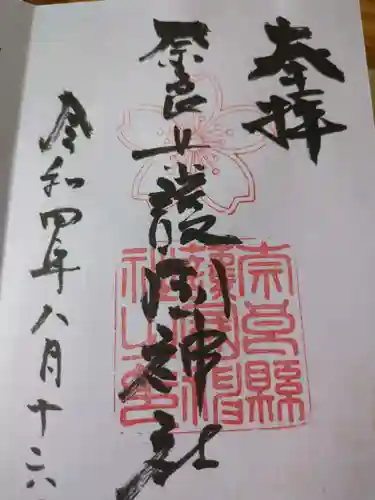 奉拝
奈良縣護國神社
令和四年八月十六
奈良縣
護國神
社之印